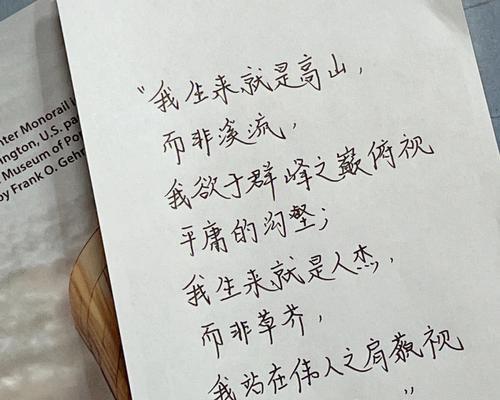 nter Monorail i
ington, U.S. pa
Museum of Po
by Frank O. Gehr
“我生来就是高山，
而非溪流，
我欲于群峰之巅俯视
平庸的沟壑；
我生来就是人杰，
而非草芥，
我站在伟人之肩藐视
”